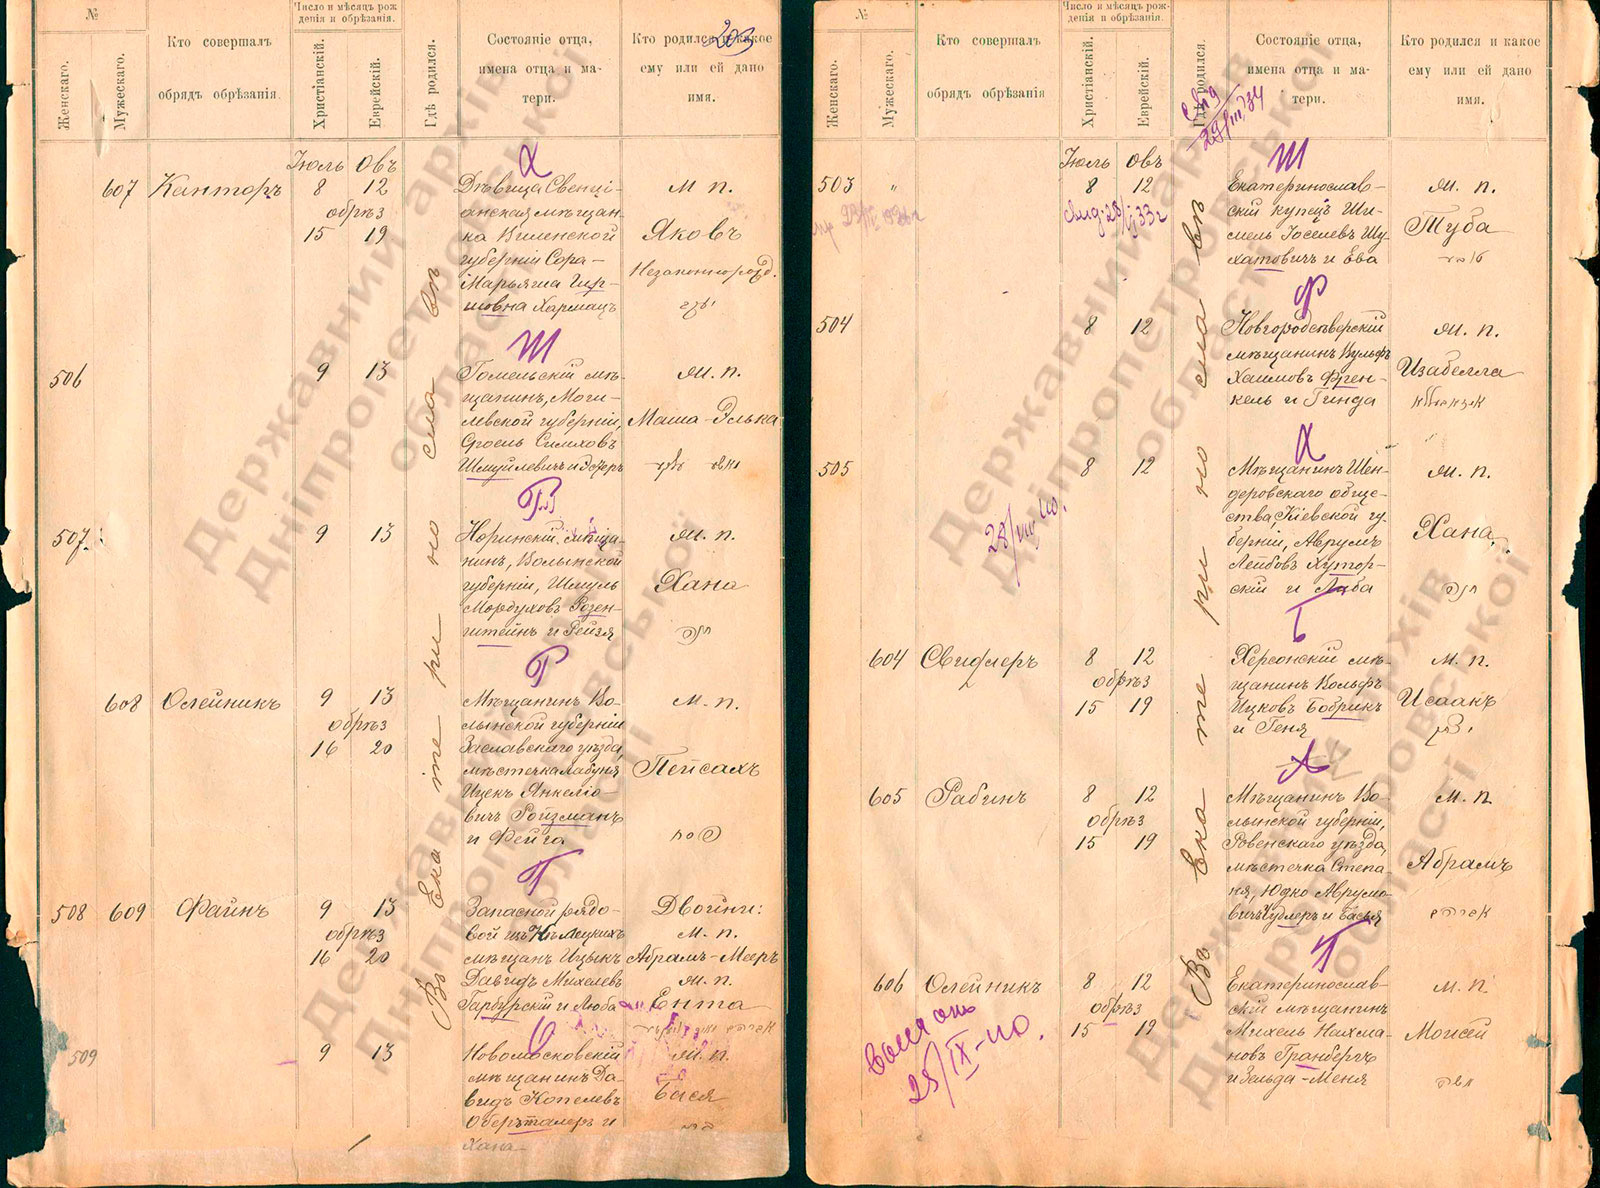 203
№
Женскаго.
Мужескаго.
Кто совершалъ
обрядъ обрѣзанія.
Число и мѣсяцъ рож
денія и обрѣзанія.
Христіанскій.
Еврейскій.
Гдѣ родился.
Состояніе отца,
имена отца и ма-
тери.
Кто родился и какое
ему или ей дано
имя.
Въ Екатеринославѣ
Х
Іюль Овъ
607 Канторъ 8 12
обрѣз
15 19
Дѣвица Свенці-
анская мѣщан-
ка Виленской
губерніи Сора-
Марьяша Гир-
шовна Хармацъ
М. п.
Яковъ
Незаконнорожд.
Ш
506 9 13
Гомельскій мѣ-
щанинъ, Моги-
левской губерніи,
Сроель Симховъ
Шмуйлевичъ и Эстеръ
Ж. п.
Маша-Элька
Р
507. 9 13
Норинскій мѣща-
нинъ, Волынской
губерніи, Шмуль
Мордуховъ Розен-
штейнъ и Рейзя
Ж. п.
Хана
חנה
Р
608 Олейникъ 9 13
обрѣз
16 20
Мѣщанинъ Во-
лынской губерніи
Заславскаго уѣзда,
мѣстечка Лабуня
Ицек Янкеліо-
вичъ Ройзманъ
и Фейга
М. п.
Пейсахъ
פסח
Г
508 609 Файнъ 9 13
обрѣз
16 20
Запасной рядо-
вой изъ
мѣщан Ицыкъ
Давидъ Михелевъ
Гарбурскій и Люба
Двойни:
М. п.
Абрамъ-Мееръ
Ж. п.
Ента
О
509 9 13
Новомосковскій
мѣщанинъ Да-
видъ Копелевъ
Оберъталеръ и
Хана
Ж. п.
Бася
№
Женскаго.
Мужескаго.
Кто совершалъ
обрядъ обрѣзанія.
Число и мѣсяцъ рож-
денія и обрѣзанія.
Христіанскій.
Еврейскій.
Гдѣ родился.
Состояніе отца,
имена отца и ма-
тери.
Кто родился и какое
ему или ей дано
имя.
29/III 34
Въ Екатеринославѣ
Ш
Іюль Овъ
503 " 8 12
Екатеринослав-
скій купецъ Ши-
мель Іоселевъ Шу-
хатовичъ и Ева
Ж. п.
Туба
Ф
504 8 12
Новгородсѣверскій
мѣщанинъ Вульфъ
Хаимовъ Френ-
кель и Гинда
Ж. п.
Изабелла
Х
505 8 12
Мѣщанинъ Шен-
деровскаго обще-
ства, Кіевской гу-
берніи, Аврумъ
Лейбовъ Хутор-
скій и Либа
Ж. п.
Хана
חנה
Б
604 Свифлеръ 8 12
обрѣз
15 19
Херсонскій мѣ-
щанинъ Вольфъ
Ицковъ Бобрикъ
и Геня
М. п.
Исаакъ
605 Рабинъ 8 12
обрѣз
15 19
Мѣщанинъ Во-
лынской губерніи,
Ровенскаго уѣзда,
мѣстечка Степа-
ня, Юдко Аврумо-
вичъ Кудлеръ и Бася
М. п.
Абрамъ
אברהם
Г
606 Олейникъ 8 12
обрѣз
15 19
Екатеринослав-
скій мѣщанинъ
Михель Нахма-
новъ Гранбергъ
и Зельда-Меня
М. п.
Моисей
משה
28/IX-40.
Державний архів
Дніпропетровської
області